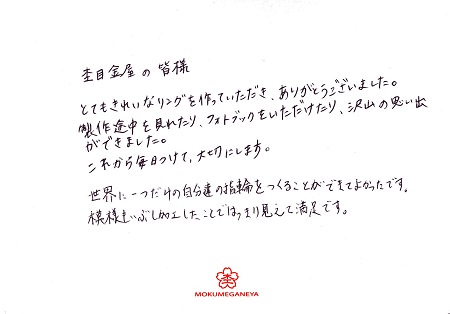 杢目金屋の皆様
とてもきれいなリングを作っていただき、ありがとうございました。
製作途中を見れたり、フォトブックをいただけたり、沢山の思い出
ができました。
これから毎日つけて、大切にします。
世界に一つだけの自分達の指輪をつくることができてよかったです。
模様もいぶし加工したことではっきり見えて満足です。
MOKUMEGANEYA